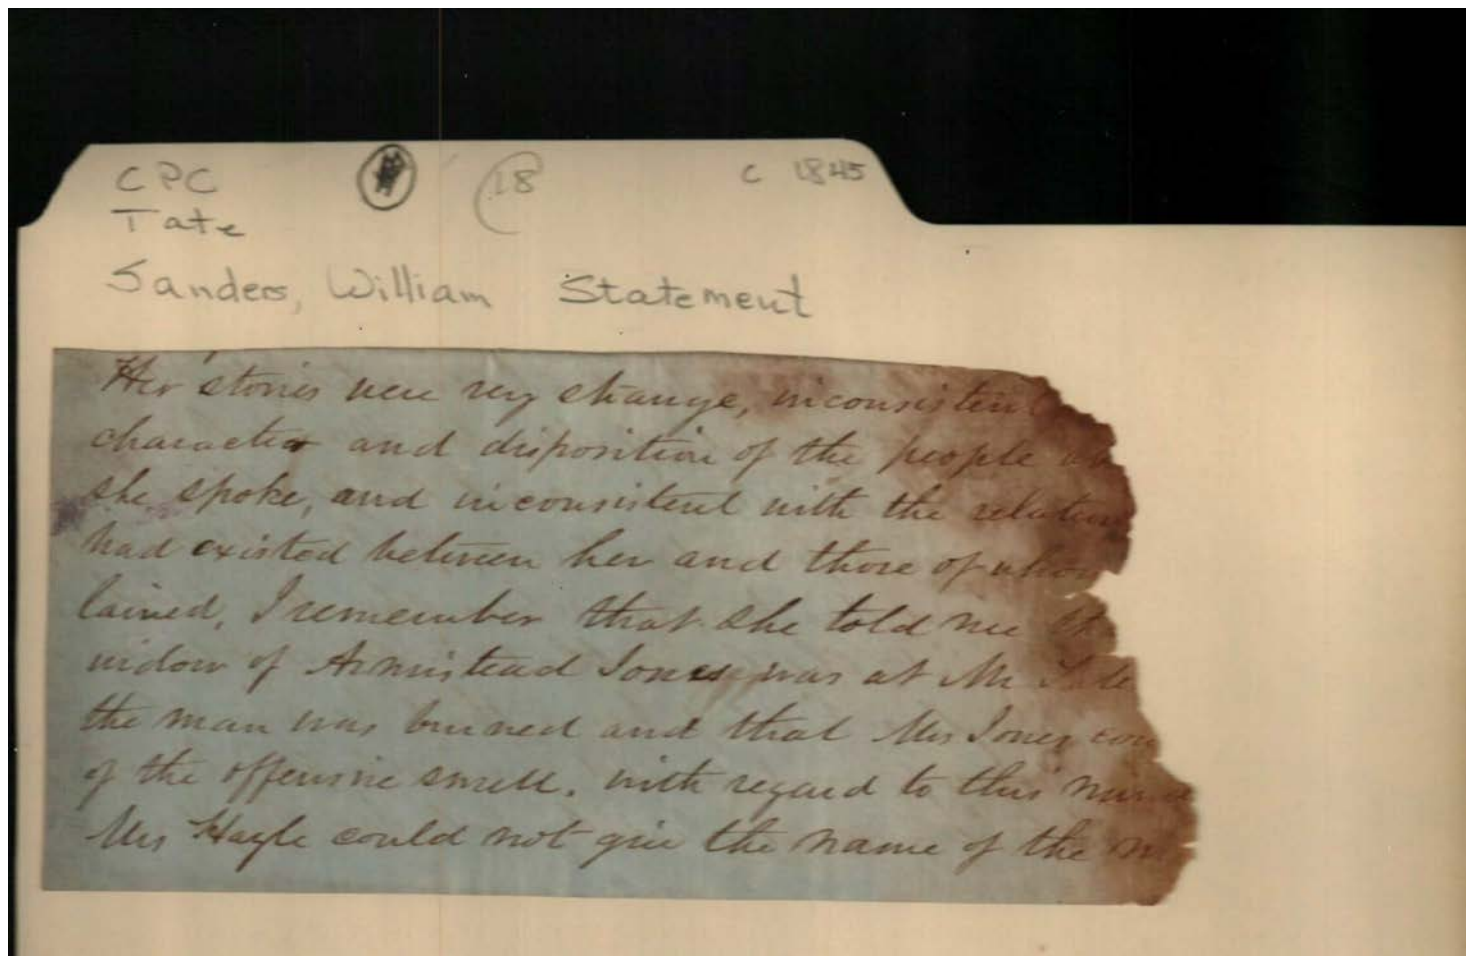 CPC 18 c 1845
Tate
Sanders, William Statement
Her stories were very strange, inconsistent
character and disposition of the people
she spoke, and inconsistent with the relation
had existed between her and those of whom
lained, I remember that she told me
widow of Armistead Jones was at Mr
the man was burned and that Mrs Jones com
of the offensive smell. with regard to this
Mrs Hagle could not give the name of the